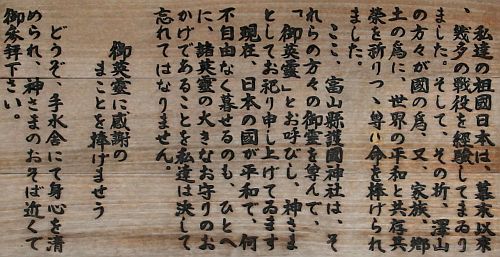 私達の祖國日本は、幕末以來
、幾多の戦役を經驗してまゐり
ました。そして、その折、澤山
の方々が國の爲、又、家族、郷
土の爲に、世界の平和と共存共
榮を祈りつゝ尊い命を捧げられ
ました。
ここ、富山縣護國神社は、そ
れらの方々の御霊を尊んで、
「御英霊」とお呼びし、神さま
としてお祀り申し上げてゐます
現在、日本の國が平和で、何
不自由なく暮せるのも、ひとへ
に、諸英霊の大きなお守りのお
かげであることを私達は決して
忘れてはなりません。
御英霊に感謝の
まことを捧げませう
どうぞ、手水舎にて身心を清
められ、神さまのおそば近くで
御参拝下さい。